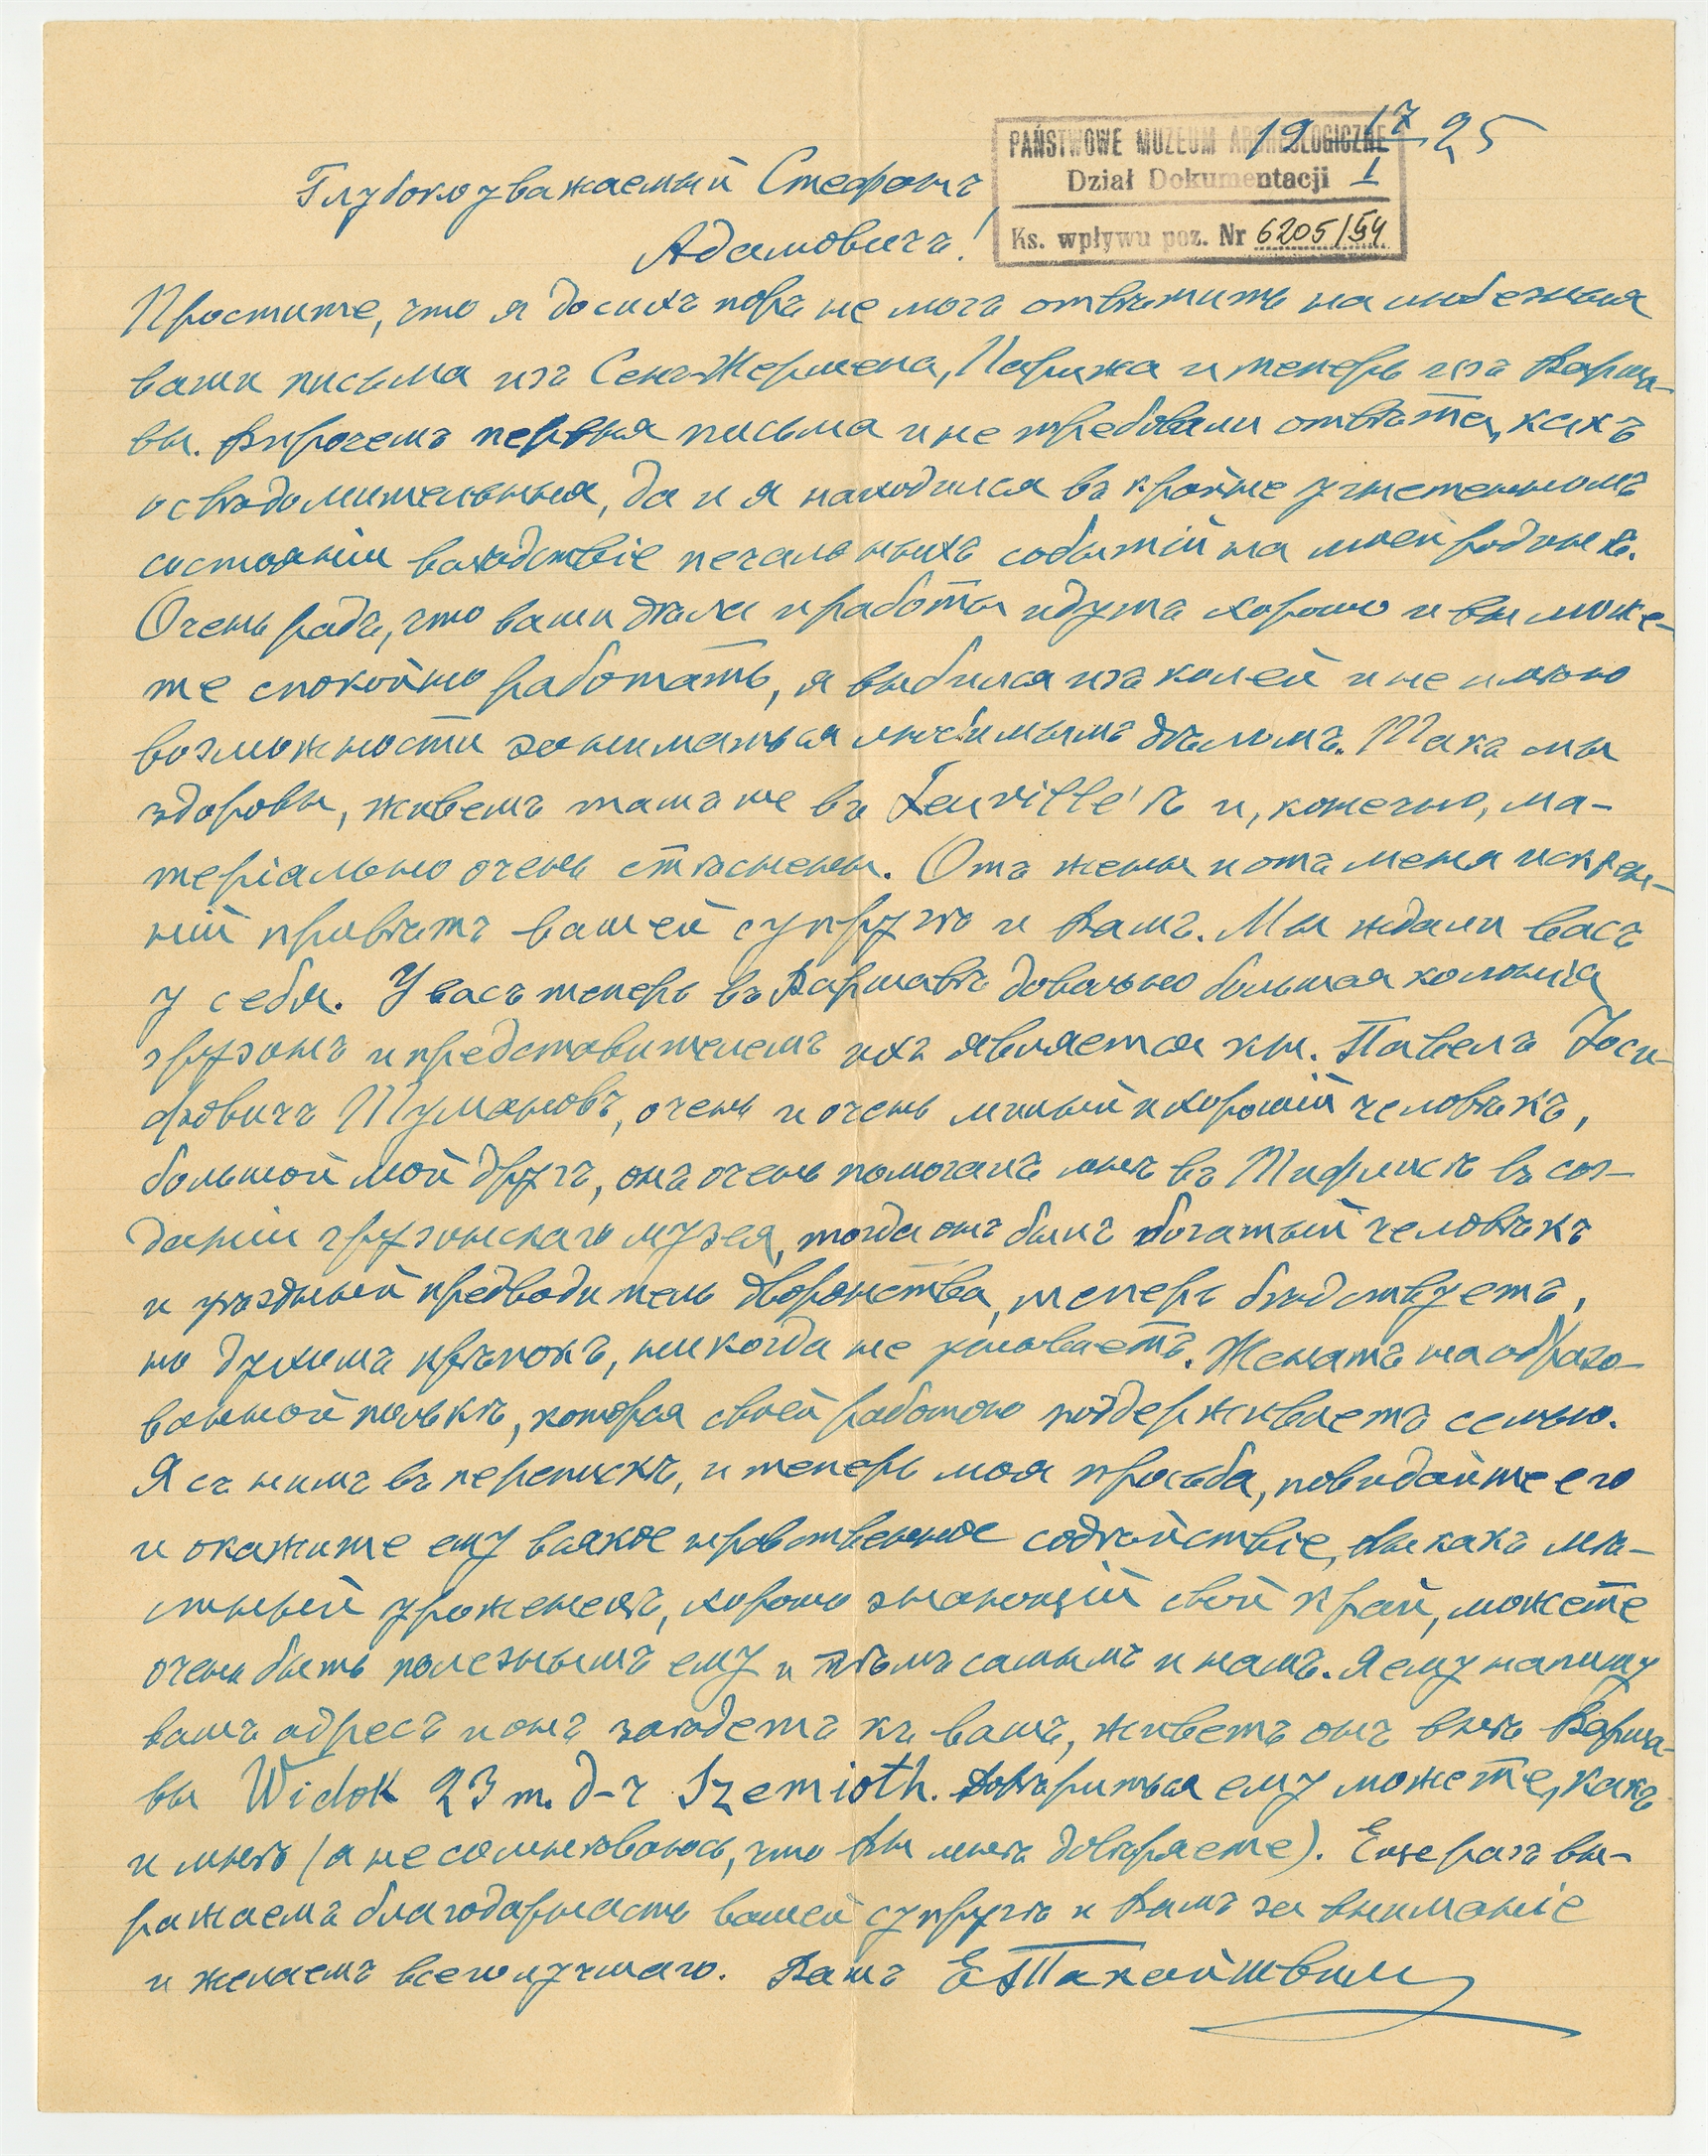 19 17/I 25
PAŃSTWOWE MUZEUM ARCHEOLOGICZNE
Dział Dokumentacji
Ks. wpływu poz. Nr 6205/54
Глубокоуважаемый Стефанъ
Адамовичъ!
Простите, что я до сихъ поръ не могъ отвѣтить на любезныя
ваши письма изъ Сенъ-Жермена, Парижа и теперь изъ Варша-
вы. Впрочемъ первыя письма и не требовали отвѣта, какъ
освѣдомительныя, да и я находился въ крайне угнетенномъ
состояніи вслѣдствіе печальныхъ событій на моей родинѣ.
Очень радъ, что ваши дѣла и работы идутъ хорошо и вы може-
те спокойно работать, я выбился изъ колеи и не имѣю
возможности заниматься любимымъ дѣломъ. Такъ мы
здоровы, живемъ тамъ же въ Leuville'ѣ и, конечно, ма-
теріально очень стѣснены. Отъ жены и отъ меня искрен-
ній привѣтъ вашей супругѣ и Вамъ. Мы ждали васъ
у себя. У васъ теперь въ Варшавѣ довольно большая колонія
грузинъ и представителемъ ихъ является кн. Павелъ Іоси-
фовичъ Тумановъ, очень и очень милый и хорошій человѣкъ,
большой мой другъ, онъ очень помогалъ мнѣ въ Тифлисѣ въ соз-
даніи грузинскаго музея, тогда онъ былъ богатый человѣкъ
и уѣздный предводитель дворянства, теперь бѣдствуетъ,
но духомъ крѣпокъ, никогда не унываетъ. Женатъ на образо-
ванной полькѣ, которая своей работою поддерживаетъ семью.
Я съ нимъ въ перепискѣ, и теперь моя просьба, повидайте его
и окажите ему всякое нравственное содѣйствіе, Вы какъ мѣ-
стный уроженецъ, хорошо знающій свой край, можете
очень быть полезнымъ ему и тѣмъ самымъ и намъ. Я ему напишу
вашъ адресъ и онъ зайдетъ къ вамъ, живетъ онъ внѣ Варша-
вы Widok 23 m. д-ч Szemioth. Довѣриться ему можете, какъ
и мнѣ (а не сомнѣваюсь, что Вы мнѣ довѣряете). Еще разъ вы-
ражаемъ благодарность вашей супругѣ и Вамъ за вниманіе
и желаемъ всего лучшаго. Вашъ Е. Такайшвили